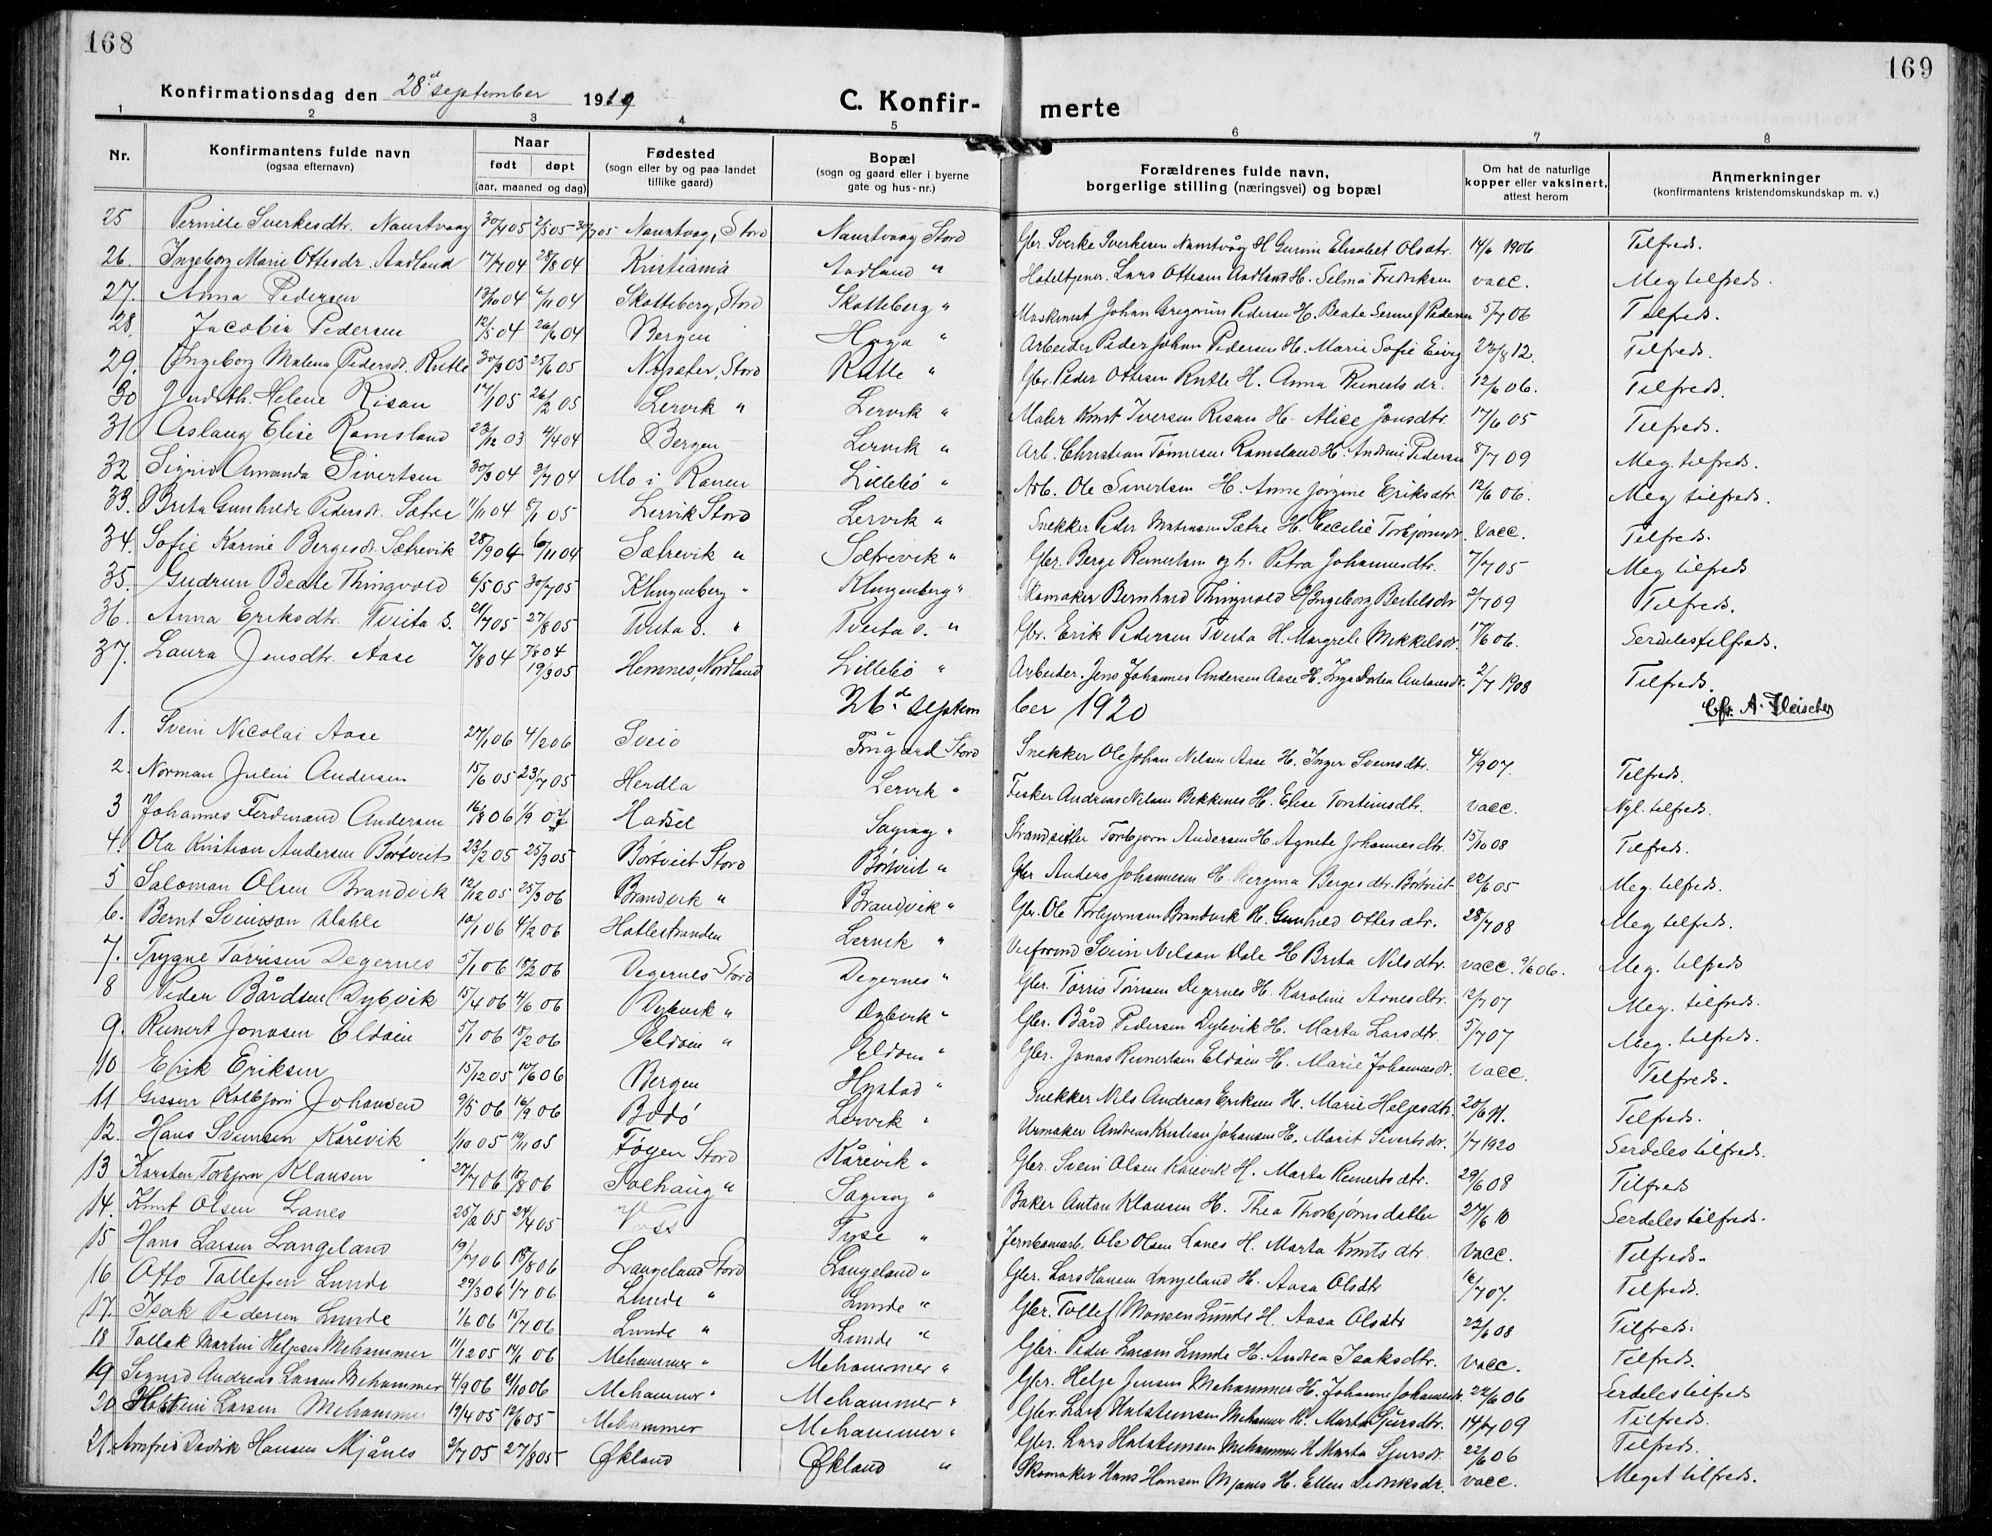 168
169
Konfirmationsdag den 28d september 1919
C. Konfirmerte
1 2 3 4 5 6 7 8
Nr. Konfirmantens fulde navn (ogsaa efternavn) Naar født døpt (aar, maaned og dag) Fødested (sogn eller by og paa landet tillike gaard) Bopæl (sogn og gaard eller i byerne gate og hus-nr.) Forældrenes fulde navn, borgerlige stilling (næringsvei) og bopæl Om hat de naturlige kopper eller vaksinert, attest herom Anmerkninger (konfirmantens kristendomskundskap m. v.)
25 Pernille Sverkesdtr. Naustvaag 30/4 05 2/5 05 30/7 05 Naustvaag, Stord Naustvaag Stord Gbr. Sverke Sverkesen Naustvåg H. Gunni Elisabet Olsdtr. 14/6 1906 Tilfreds.
26. Ingeborg Marie Ottesdr. Aadland 17/7 04 28/8 04 Kristiania Aadland " Hoteltjener. Lars Ottesen Aadland H. Selma Fredriksen vacc. Meg tilfreds.
27. Anna Pedersen 13/10 04 6/11 04 Skotteberg, Stord Skotteberg " Maskinist Johan Gregorius Pedersen H. Beate Pedersen 5/7 06 Tilfreds.
28. Jacobia Pedersen 12/5 04 26/6 04 Bergen Haga " Arbeider Peder Johan Pedersen H. Marie Sofie 23/8 12. Tilfreds.
29. Ingeborg Malena Pedersdr. Rutle 30/3 05 25/6 05 Nysæter, Stord Rutle " Gbr. Peder Ottesen Rutle H. Anna Reinertsdr. 12/6 06. Tilfreds.
30 Judith Helene Risan 17/1 05 26/2 05 Lervik " Lervik " Maler Knut Iversen Risan H. Alice Jonsdtr. 17/6 05 Tilfreds.
31 Aslaug Elise Ramsland 23/12 03 4/4 04 Bergen Lervik " Arb. Christian Tønnesen Ramsland H. Andrine Pedersen 8/7 09 Meg. tilfreds.
32 Sigrid Amanda Sivertsen 30/3 04 3/7 04 Mo i Ranen Lillebø " Arb. Ole Sivertsen H. Anne Jørgine Eriksdtr. 12/6 06. Meg tilfreds.
33. Brita Gunhilde Pedersdr. Sætre 1/11 04 8/1 05 Lervik Stord Lervik " Snekker Peder Matiasen Sætre H. Cecilie Torbjørnsdr. Vacc. Tilfreds.
34. Sofie Karine Bergesdr. Sætrevik 28/9 04 6/11 04 Sætrevik " Sætrevik " Gbr. Berge Reinertsen og h. Petra Johannesdtr. 7/7 05 Meg tilfreds
35. Gudrun Beate Thingvold 6/5 05 30/7 05 Klingenberg " Klingenberg " Skomaker Bernhard Thingvold H. Ingeborg Bertelsdtr 2/7 09 Tilfreds.
36. Anna Eriksdtr. Tveita s. 21/7 05 27/8 05 Tveita s. " Tveita s. " Gbr. Erik Pedersen Tveita H. Margrete Mikkelsdr. 17/6 06. Serdeles tilfreds.
37. Laura Jensdtr. Aase 7/8 04 7/8 04 19/3 05 Hemnes, Nordland Lillebø " Arbeider. Jens Johannes Andersen Aase H. Inga Dortea Antonsdr. 2/7 1908 Tilfreds.
26de september 1920
Chr. A. Fleischer
1. Svein Nicolai Aase 27/1 06 4/2 06 Sveio Tingard Stord Snekker Ole Johan Nilsen Aase H. Inger Sveinsdtr. 4/9 07. Tilfreds.
2. Norman Julin Andersen 15/6 05 23/7 05 Herdla Lervik " Fisker Andreas Nilsen Bekkenes H. Elise Torsteinsdtr. vacc. Nyl. tilfreds.
3 Johannes Ferdinand Andersen 16/8 06 1/9 07 Hadsel Sagvåg " Strandsitter Torbjørn Andersen H. Agnete Johannesdtr. 15/10 08 Tilfreds.
4. Ola Kristian Andersen Børtveit 23/2 05 25/3 05 Børtveit Stord Børtveit " Gbr Anders Johannesen H. Bergina Bergesdtr. Børtveit 22/6 05 Meg. tilfreds.
5 Salomon Olsen Brandvik 12/12 05 25/3 06 Brandvik " Brandvik " Gbr. Ole Torbjørnsen Brandvik H. Gunhild Ottesdtr. 28/7 08 Meg tilfreds.
6. Bernt Sveinson Dahle 10/1 06 4/2 06 Hatlestranden Lervik " Svein Nilsen Dale H Brita Nilsdtr. vacc. 9/6 06. Meg. tilfreds
7. Trygve Tørrisen Degernes 5/1 06 18/2 06 Degernes Stord Degernes " Gbr. Tørris Tørrisen Degernes H. Karoline Arnesdtr. 12/7 07 Meg. tilfreds.
8 Peder Bårdsen Dybvik 15/4 06 4/6 06 Dybvik " Dybvik " Gbr. Bård Pedersen Dybvik H. Marta Larsdtr. 5/7 07 Meg. tilfreds.
9. Reinert Jonasen Eldøen 5/1 06 18/2 06 Eldøen " Eldøen " Gbr. Jonas Reinertsen Eldøen H. Marie Johannesdr. vacc. Tilfreds.
10 Erik Eriksen 15/12 05 10/6 06 Bergen Hystad " Snekker Nils Andreas Eriksen H. Marie Helgesdtr. 20/6 11. Tilfreds.
11 Gissur Kolbjørn Johansen 9/5 06 16/9 06 Bodø Lervik " Urmaker Andreas Kristian Johansen H. Marit Sivertsdr. 1/7 1920 Serdeles tilfreds.
12. Hans Sveinsen Kårevik 1/10 05 19/11 05 Føyen Stord Kårevik " Gbr. Svein Olsen Kårevik H. Marta Reinertsdtr. 29/6 08 Tilfreds
13 Karsten Torbjørn Klausen 27/7 06 18/8 06 Solhaug " Sagvåg " Baker Anton Klausen H. Thea Thorbjørnsdatter 27/6 10 Serdeles tilfreds.
14. Knut Olsen Lanes 25/2 05 24/4 05 Voss Tyse " Jernbanearb. Ole Olsen Lanes H. Marta Knutsdtr. Vacc. Tilfreds.
15 Hans Larsen Langeland 19/7 06 18/8 06 Langeland Stord Langeland " Gbr. Lars Hansen Langeland H. Aasa Olsdtr 16/7 07. Tilfreds.
16 Otto Tollefsen Lunde 29/3 06 1/7 06 Lunde " Lunde " Gbr. Tollef Monsen Lunde H. Aasa Olsdtr 23/6 08 Tilfreds.
17. Isak Pedersen Lunde 1/6 06 15/7 06 Lunde " Lunde " Gbr. Peder Larsen Lunde H. Andrea Isaksdtr. vacc. Tilfreds.
18 Tollak Martin Helgesen Mehammer 11/12 05 14/1 06 Mehammer " Mehammer " Gbr. Helge Jensen Mehammer H. Johanne Johannesdr. 22/6 06 Serdeles tilfreds
19 Sigurd Andreas Larsen Mehammer 4/9 06 21/10 06 Mehammer " Mehammer " Gbr. Lars Halstensen Mehammer H. Marta Sjursdtr. 14/7 09 Tilfreds.
20 Halstein Larsen Mehammer 19/4 05 12/6 05 Mehammer Mehammer " Gbr. Lars Halstensen Mehammer H. Marta Sjursdr. 22/6 06 Tilfreds.
21. Arnfred Didrik Hansen Mjånes 2/7 05 27/8 05 Økland Økland " Skomaker Hans Hansen Mjånes H. Ellen Didriksdr. vacc. Meget tilfreds.